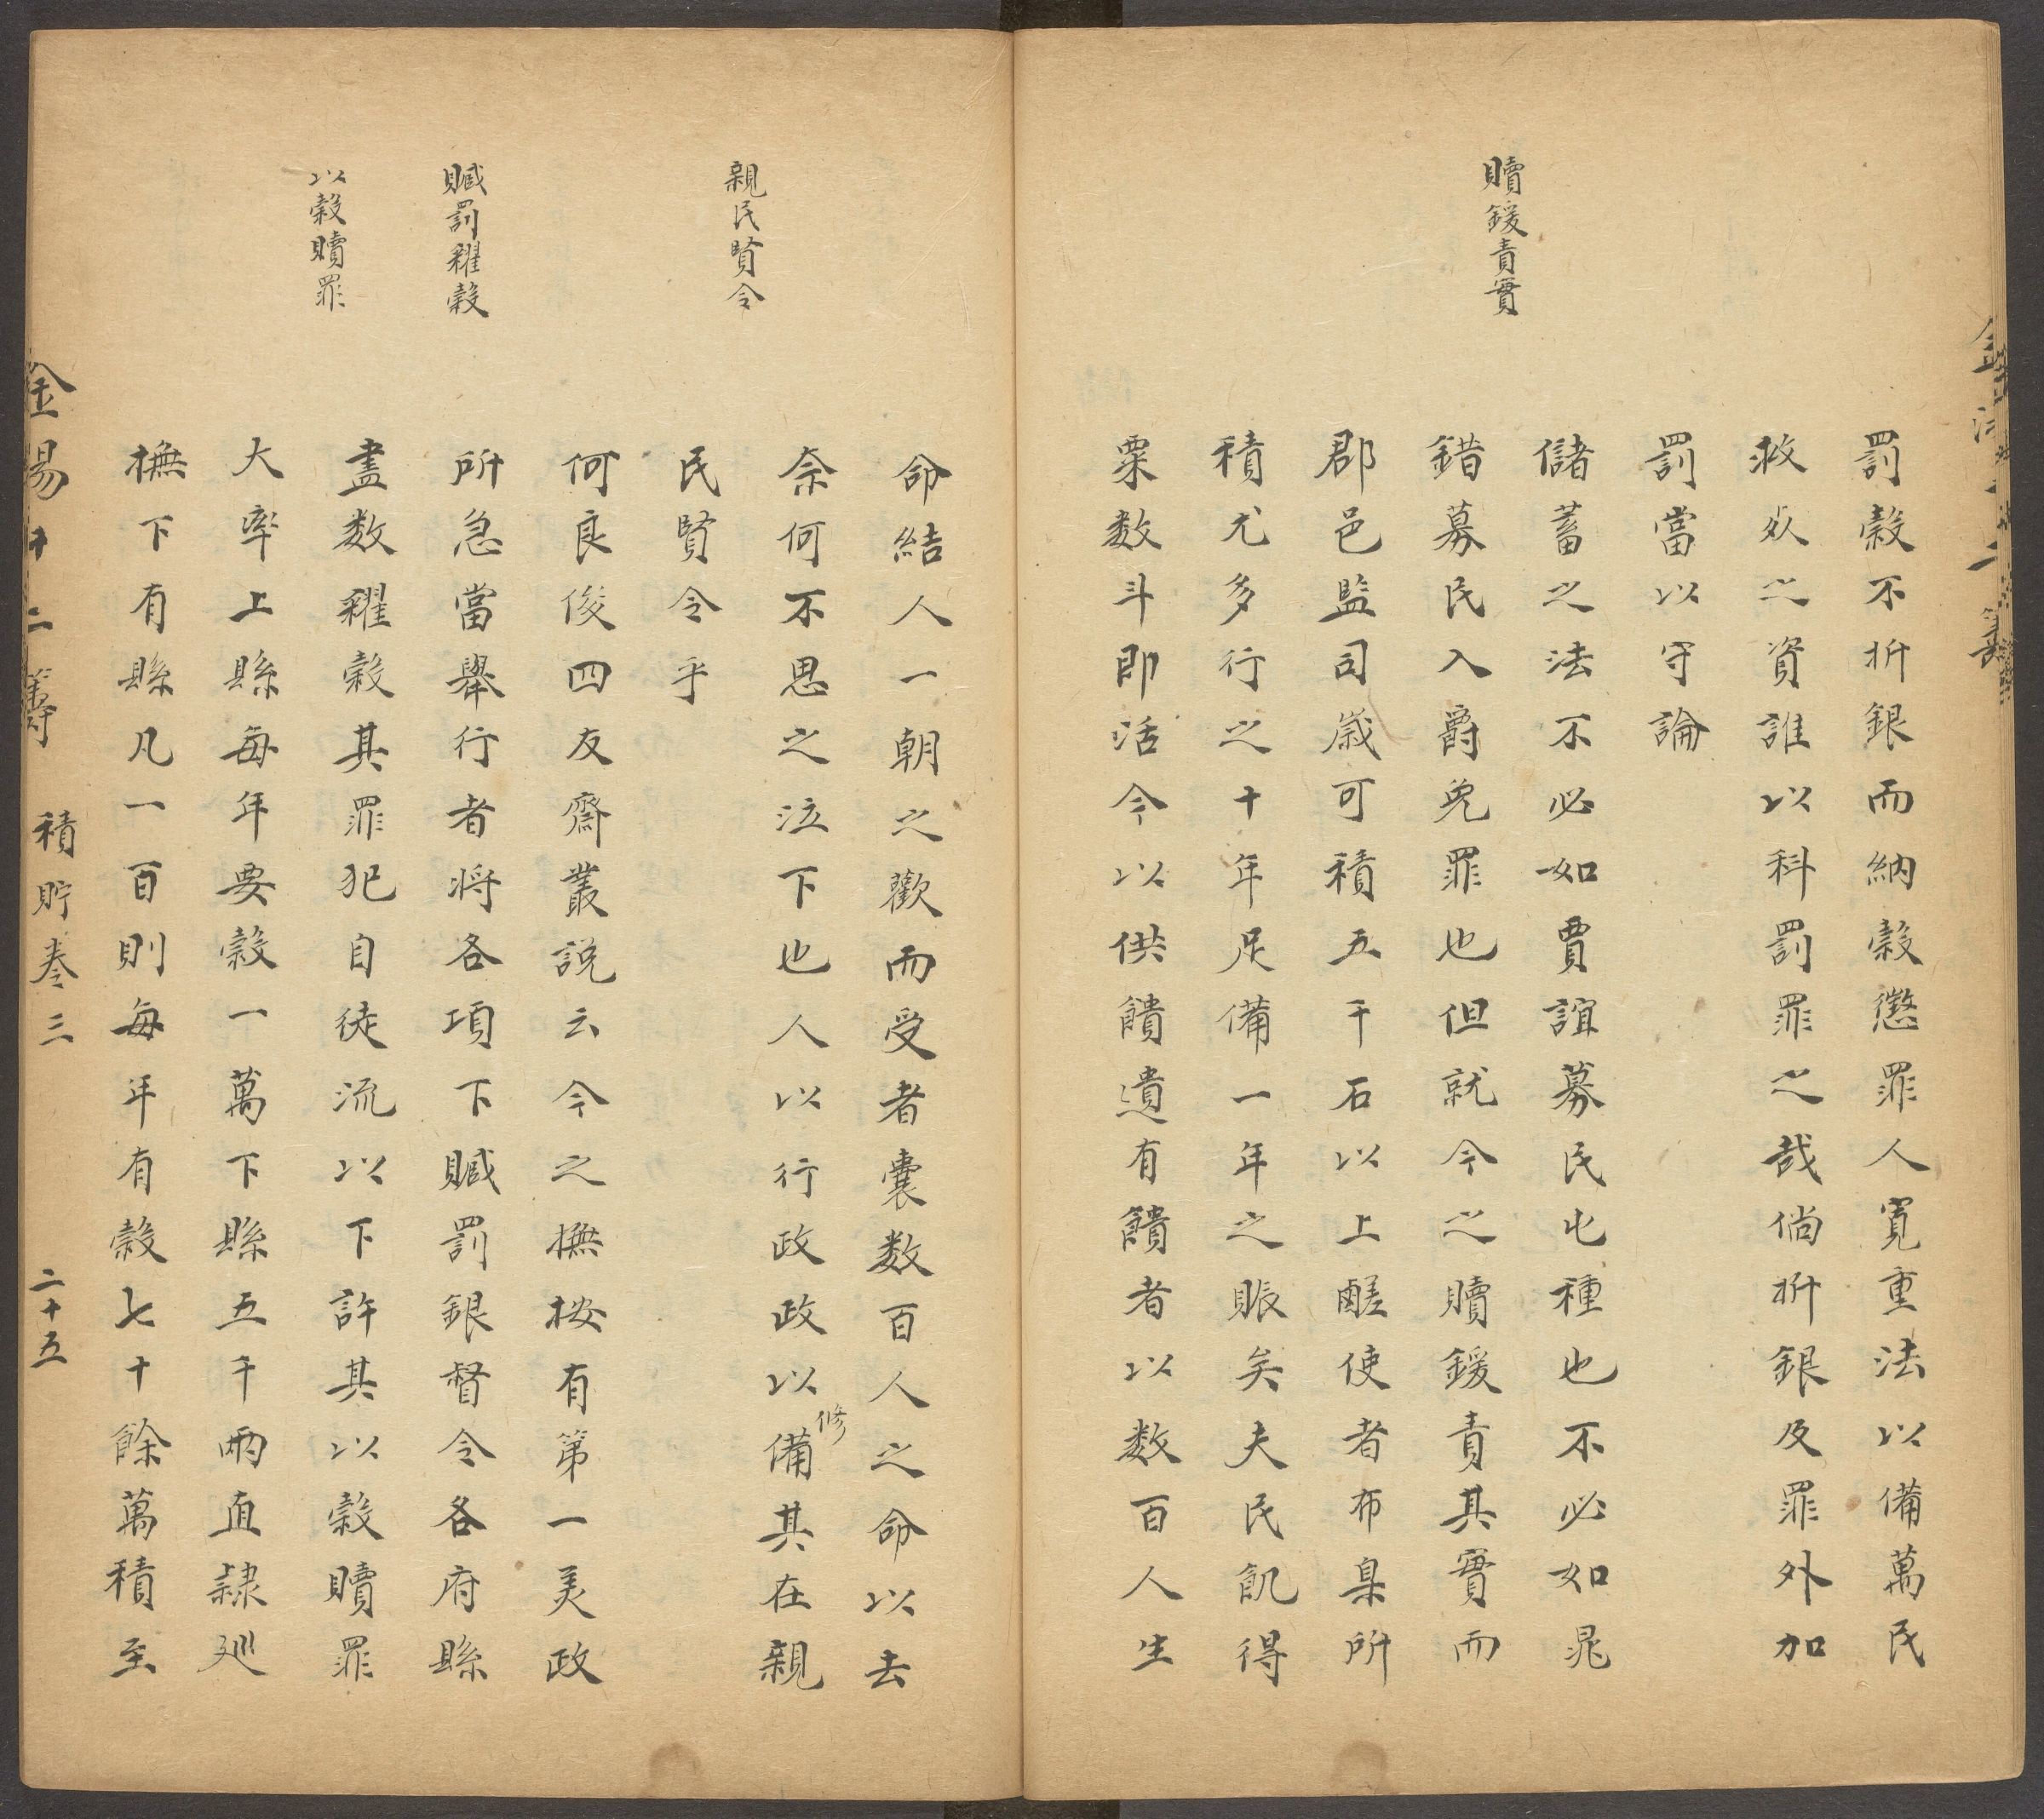 贖鍰責實
罰穀不折銀而納穀懲罪人寬重法以備萬民
救災之資誰以科罰罪之哉倘折銀及罪外加
罰當以守論
儲蓄之法不必如賈誼募民屯種也不必如晁
錯募民入爵免罪也但就今之贖鍰責其實而
郡邑監司歲可積五千石以上鹺使者布臬所
積尤多行之十年足備一年之賑矣夫民飢得
粟数斗即活今以供饋遺有饋者以数百人生
親民賢令
贓罰糴穀
以穀贖罪
命結人一朝之歡而受者囊数百人之命以去
柰何不思之泣下也人以行政政以備其在親
修
民賢令乎
何良俊四友齋叢説云今之撫按有第一美政
所急當舉行者将各項下贓罰銀督令各府縣
盡数糴穀其罪犯自徒流以下許其以穀贖罪
大率上縣每年要穀一萬下縣五千兩直隷廵
撫下有縣凡一百則每年有穀七十餘萬積至
金湯十二籌 積貯卷三 二十五